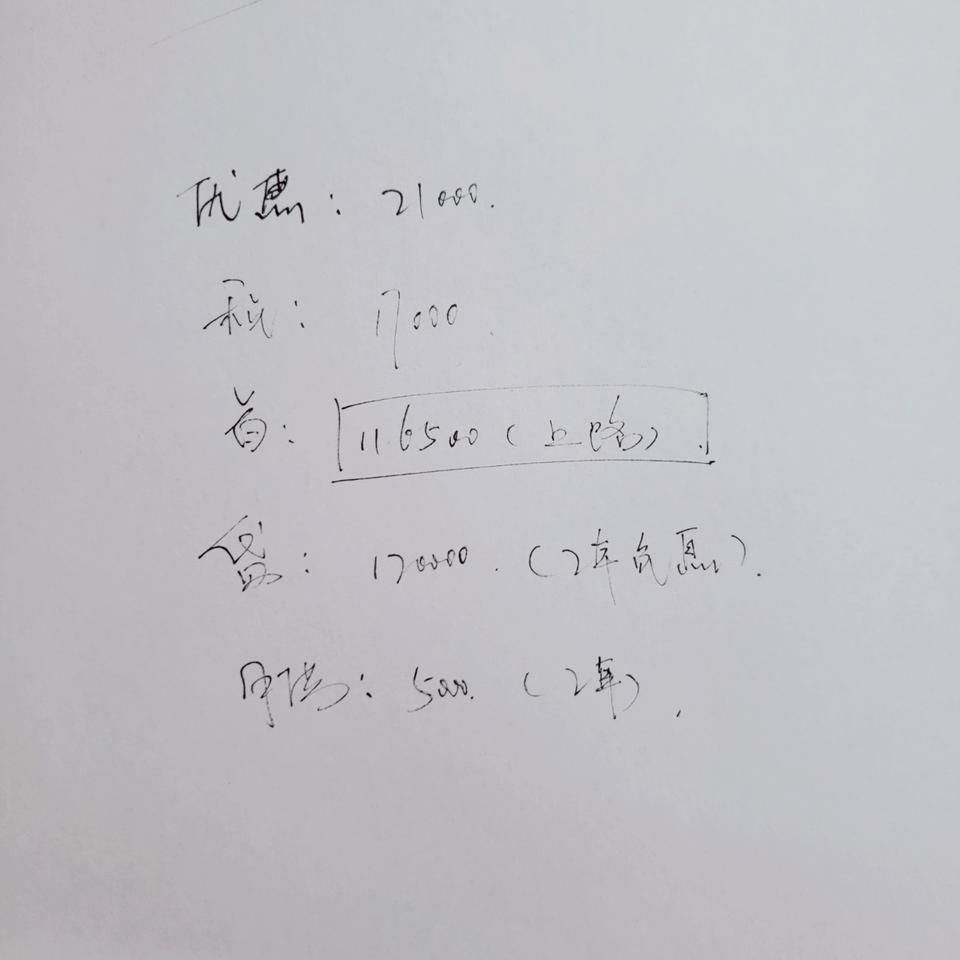 优惠：21000.
税：17000
首：116500（上路）.
贷：120000.（2年免息）.
月供：5000.（2年）.